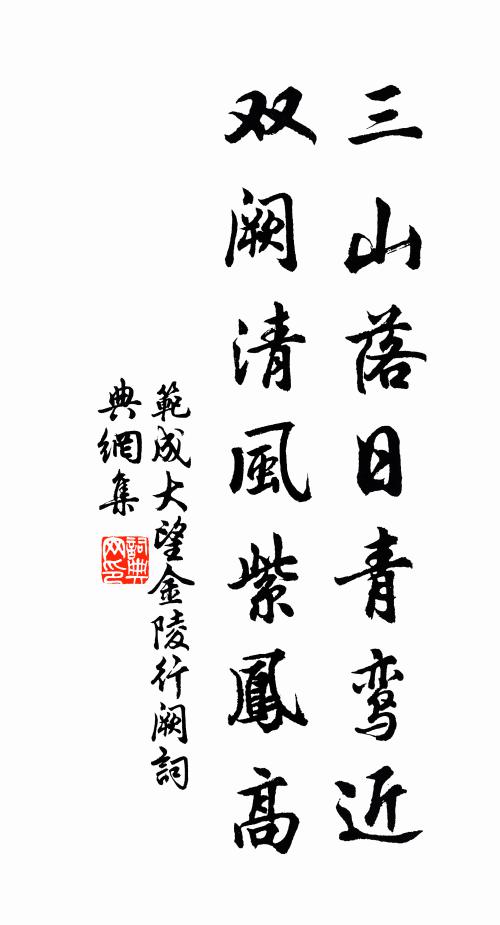 三山落日青鸾近
双阙清風紫鳳高
範成大望金陵行阙詞
典網集
詞典网印